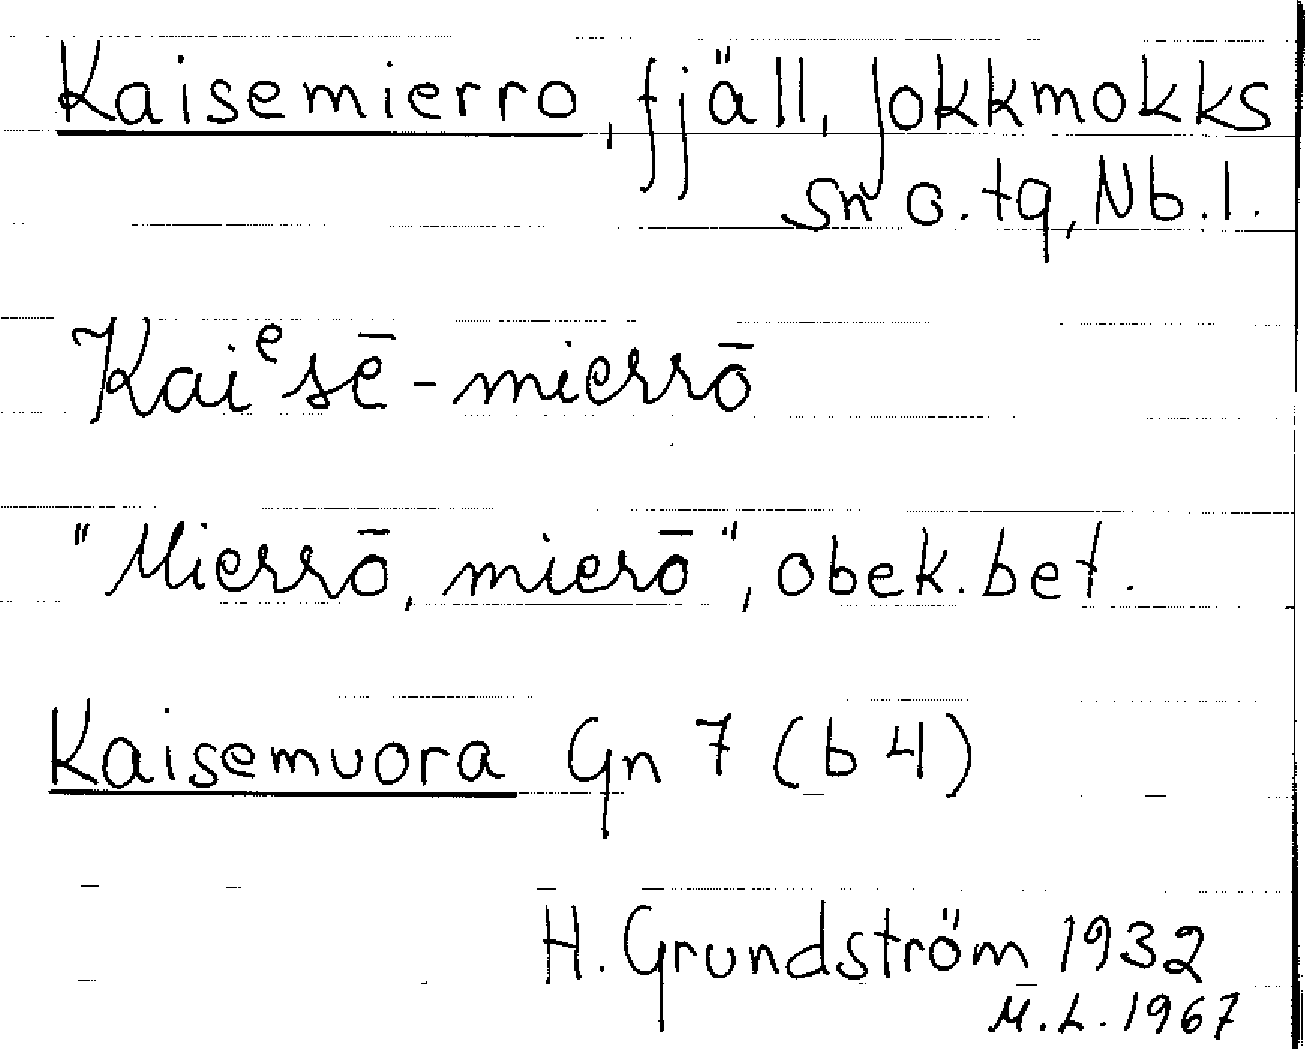 Kaisemierro, fjäll, Jokkmokks
sn o. tg, Nb. l.
Kaiᵉsē-mierrō
"Mierrō, mierō", obek. bet.
Kaisemuora Gn 7 (b 4)
H. Grundström 1932
M. L. 1967